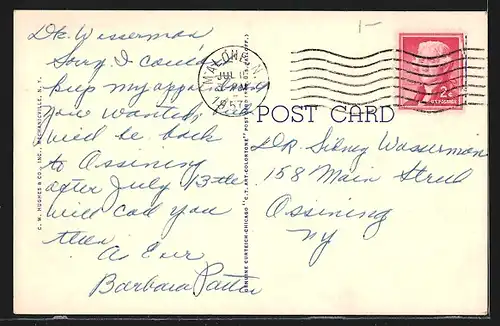 1-
Dr. Wasserman
Sorry I couldn't
keep my appointment
you wanted,
will be back
to Ossining
after July 13th
will call you
then
As Ever
Barbara Patten
C. W. HUGHES & CO., INC., MECHANICVILLE, N. Y.
GENUINE CURTEICH-CHICAGO "C.T. ART-COLORTONE" POST CARD (REG. U.S. PAT. OFF.)
MALONE, N.Y.
JUL
1957
2¢
U.S. POSTAGE
POST CARD
DR. Sidney Wasserman
158 Main Street
Ossining
NY